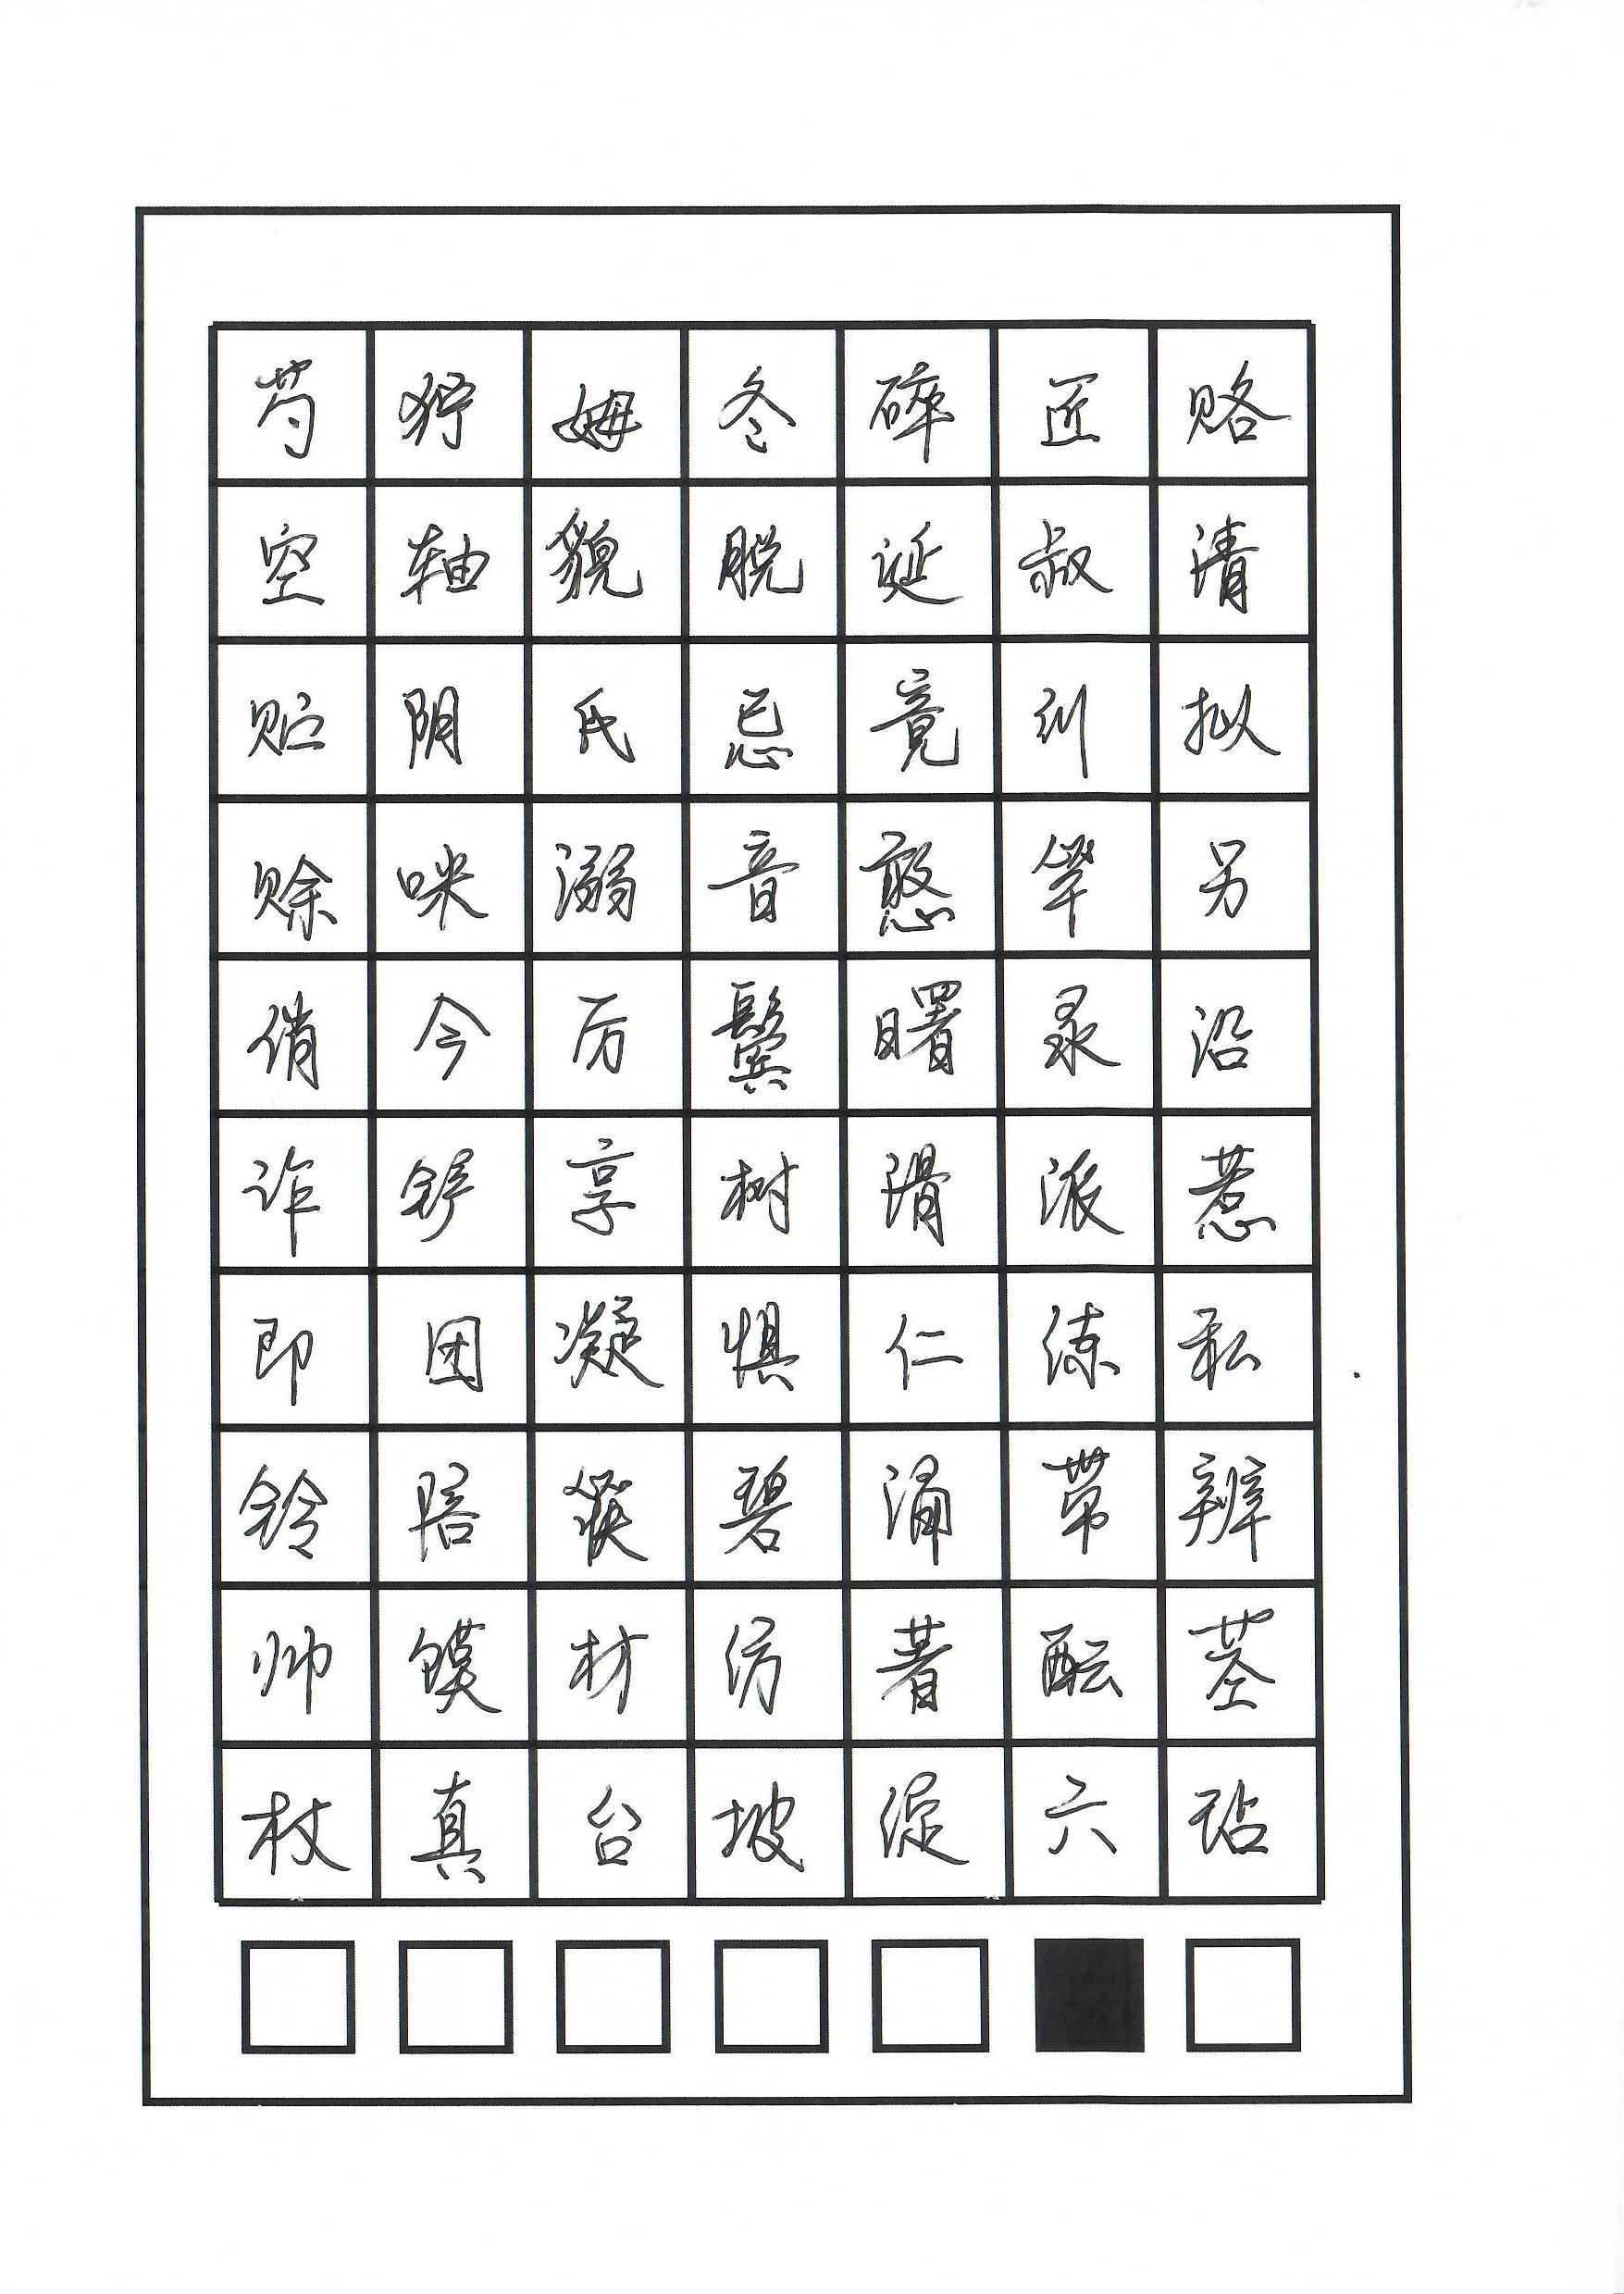 芍狞姆冬碎匠赂
空轴貌脱诞叔清
贮阴氏忌竟纠拟
赊咪溺音憨竿另
俏今厉鬓曙录沿
诈铲享树滑派惹
即团凝惧仁练私
铃陪筷碧涌带辨
帅馍材仿著酝茎
杖真台坡绽六砧